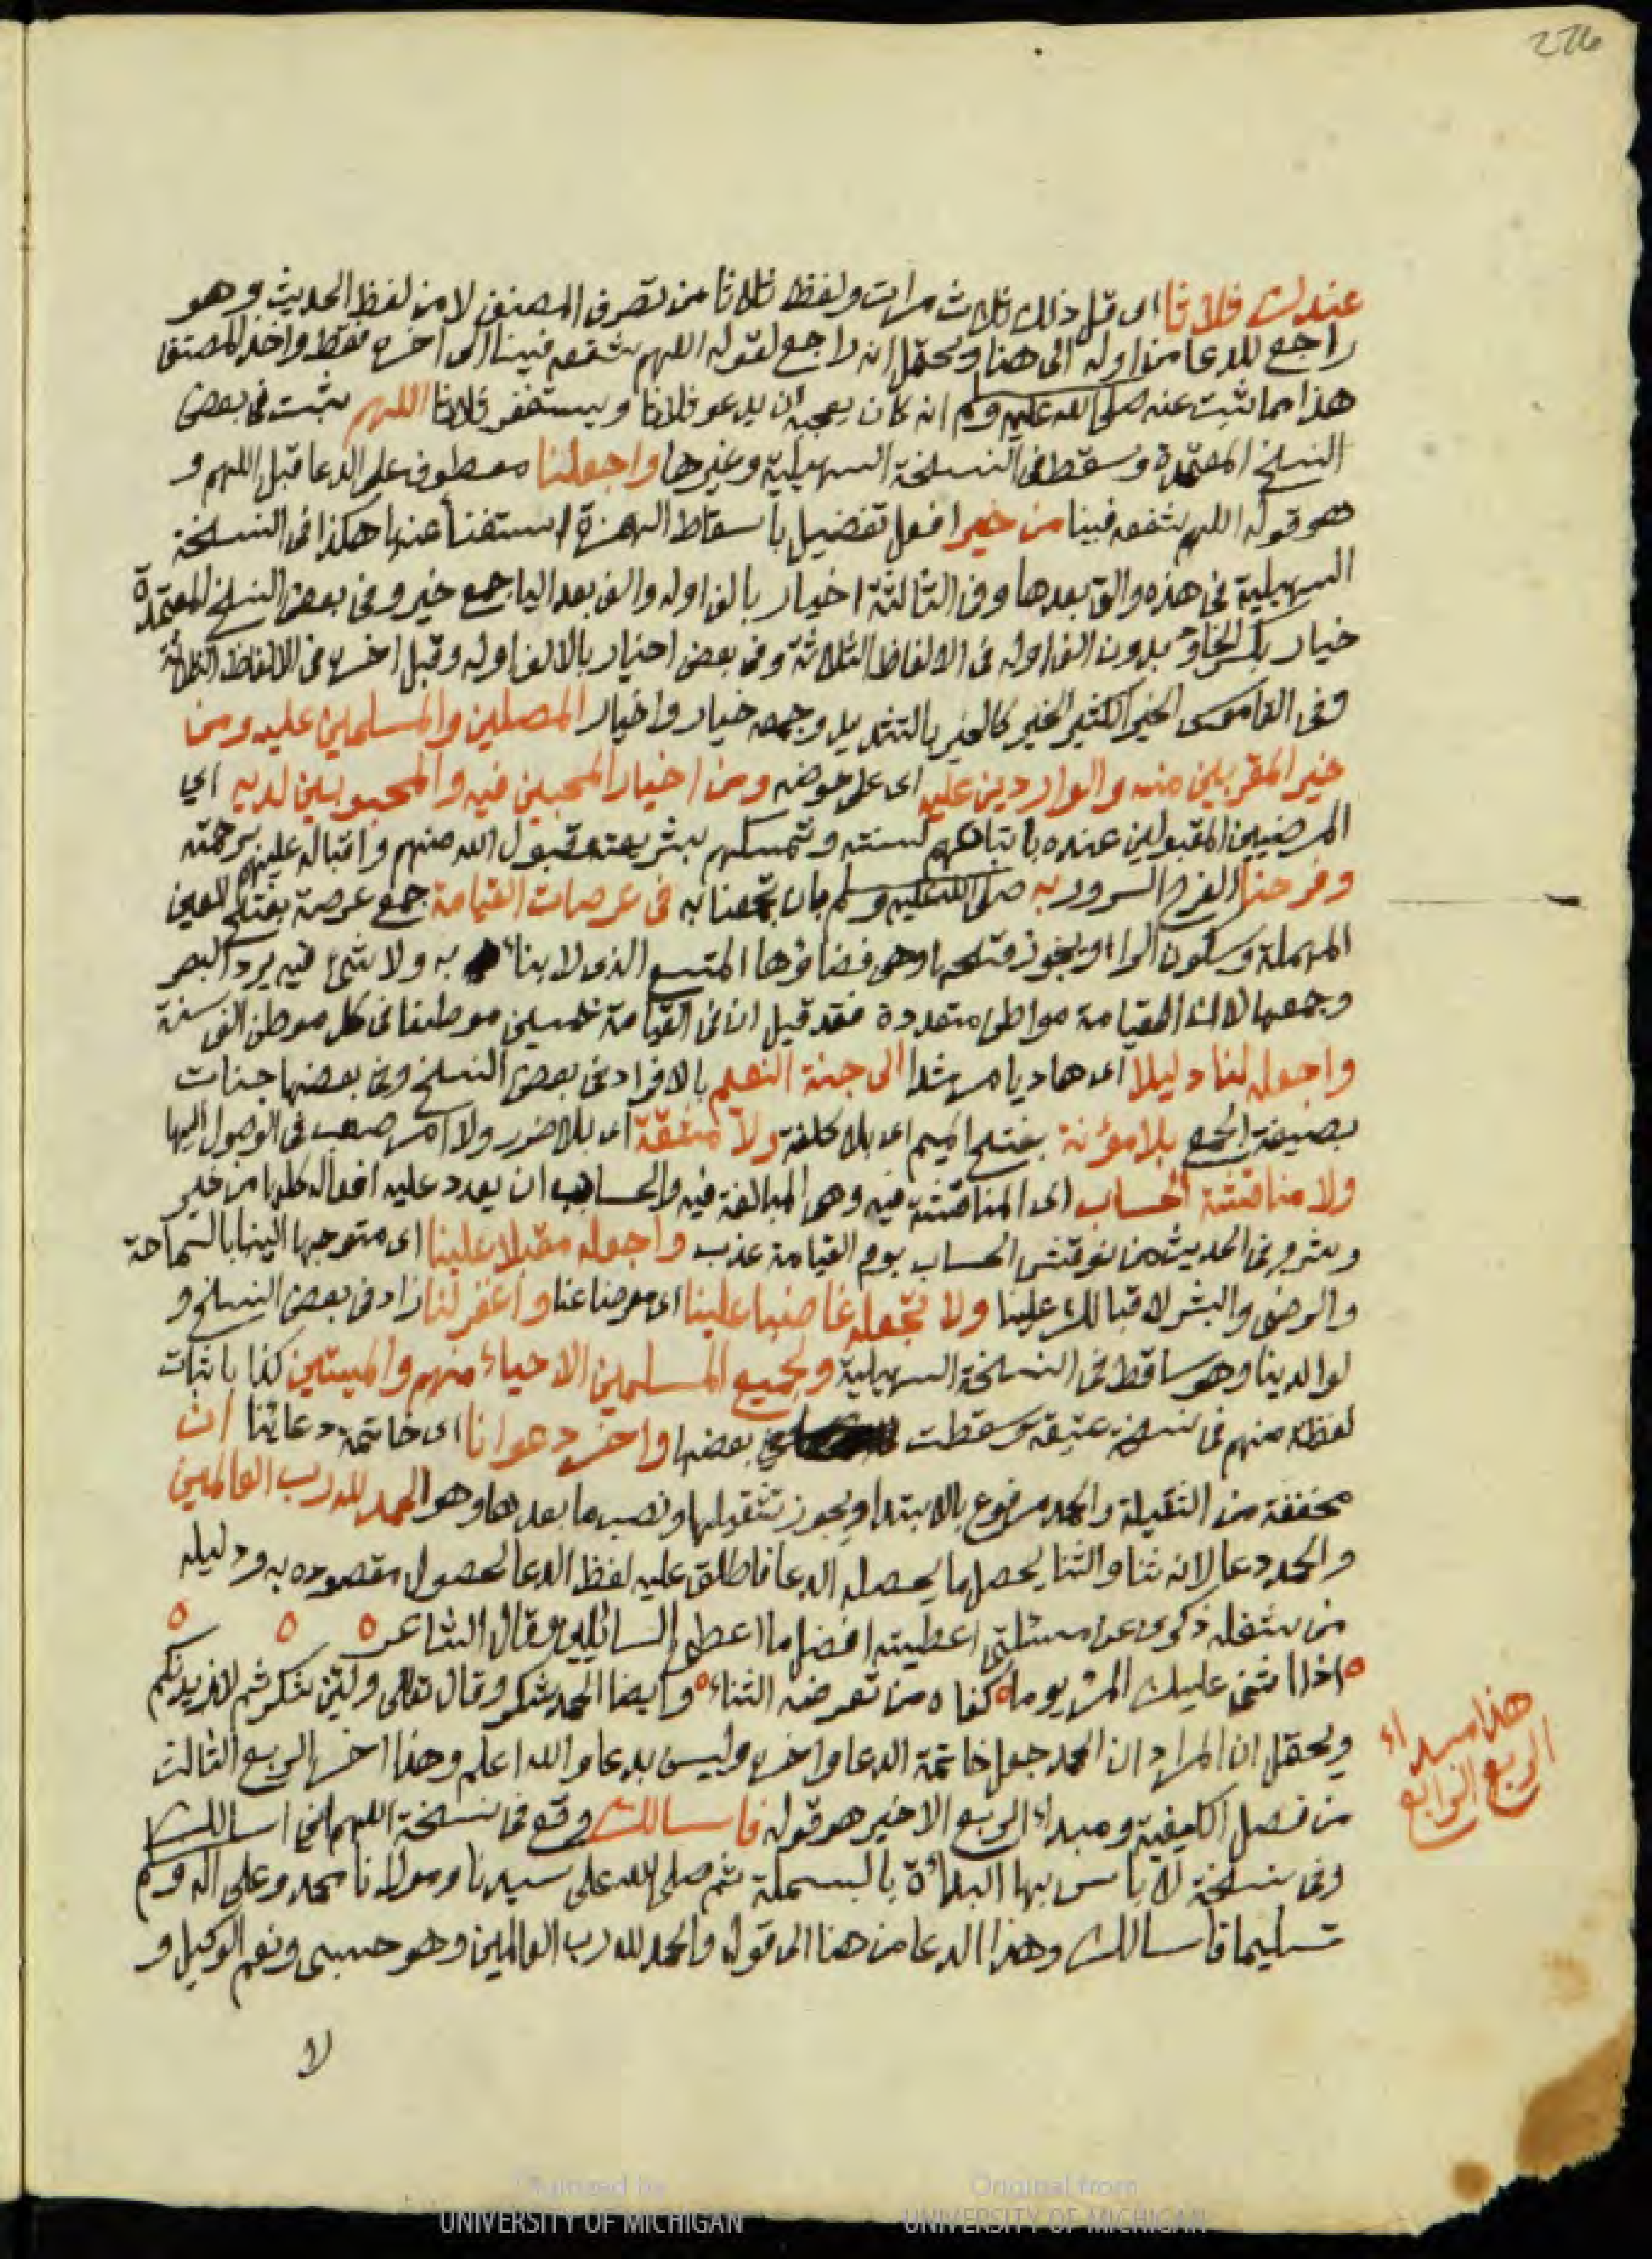 276
عندك ثلاثا اى قل ذلك ثلاث مرات ولفظ ثلاثا من تصرف المصنف لا من لفظ الحديث وهو
راجع للدعا من اوله الى هنا ويحتمل انه راجع لقوله اللهم شفعه فينا الى اخره فقط واخذ المصنف
هذا مما ثبت عنه صلى الله عليه وسلم انه كان يعجبه ان يدعو ثلاثا ويستغفر ثلاثا اللهم ثبت في بعض
النسخ المعتمدة وسقط في النسخة السهيلية وغيرها واجعلنا معطوف على الدعا قبل اللهم و
هو قوله اللهم شفعه فينا من خير افعل تفضيل باسقاط الهمزة استغناء عنها هكذا في النسخة
السهيلية في هذه والتى بعدها وفى الثالثة اخيار بالف اوله والف بعد اليا جمع خير وفى بعض النسخ المعتمدة
خيار بكسر الخا و بدون الف اوله في الالفاظ الثلاثة وفى بعض اخيار بالالف اوله وقبل اخره في الالفاظ الثلاثة
وفى القاموس الخير الكثير الخير كالخير بالتشديد وجمعه خيار واخيار المصلين والمسلمين عليه ومن
خير المقربين منه والواردين عليه اى على حوضه ومن اخيار المحبين فيه والمحبوبين لديه اي
المرضيين المقبولين عنده باتباعهم لسنته وتمسكهم بشريعته قبول الله منهم واقباله عليهم برحمته
وفرحنا الفرح السرور به صلى الله عليه وسلم بان تجمعنا به في عرصات القيامة جمع عرصة بفتح العين
المهملة وسكون الراء ويجوز فتحها وهى فضاؤها المتسع الذى لا بناء به ولا شئ فيه يرد البصر
وجمعها لان القيامة مواطن متعددة فقد قيل ان في القيامة خمسين موطنا في كل موطن الف سنة
واجعله لنا دليلا اى هاديا مرشدا الى جنة النعيم بالافراد في بعض النسخ وفى بعضها جنات
بصيغة الجمع بلا مؤنة بفتح الميم اى بلا كلفة ولا مشقة اى بلا ضرر ولا امر صعب في الوصول اليها
ولا مناقشة الحساب اى المناقشة فيه وهى المبالغة فيه والحساب ان يعدد عليه افعاله كلها من خير
وشر وفى الحديث من نوقش الحساب يوم القيامة عذب واجعله مقبلا علينا اى متوجها الينا بالسماحة
والرضى والبشر لاقبالك علينا ولا تجعله غاضبا علينا اى معرضا عنا واغفر لنا زاد في بعض النسخ و
لوالدينا وهو ساقط في النسخة السهيلية ولجميع المسلمين الاحياء منهم والميتين كذا باثبات
لفظة منهم في نسخة عتيقة وسقطت في بعضها واخر دعوانا اى خاتمة دعائنا ان
مخففة من الثقيلة والحمد مرفوع بالابتدا ويجوز تثقيلها ونصب ما بعدها وهو الحمد لله رب العالمين
والحمد دعا لانه ثنا والثنا يحصل ما يحصله الدعا فاطلق عليه لفظ الدعا لحصول مقصوده به ودليله
من شغله ذكرى عن مسئلتى اعطيته افضل ما اعطى السائلين وقال الشاعر
اذا اثنى عليك المرء يوما كفاه من تعرضه الثناء وايضا الحمد شكر وقال تعالى ولئن شكرتم لازيدنكم
ويحتمل ان المراد ان الحمد جعل خاتمة الدعا واخره وليس بدعا والله اعلم وهذا اخر الربع الثالث
من فصل الكيفية ومبداء الربع الاخير هو قوله فاسالك وقع في نسخة اللهم انى اسالك
وفى نسخة لا باس بها البداءة بالبسملة ثم صلى الله على سيدنا ومولانا محمد وعلى اله وسلم
تسليما فاسالك وهذا الدعا من هنا الى قوله والحمد لله رب العالمين وهو حسبى ونعم الوكيل و
هذا مبداء
الربع الرابع
لا
Digitized by
UNIVERSITY OF MICHIGAN
Original from
UNIVERSITY OF MICHIGAN